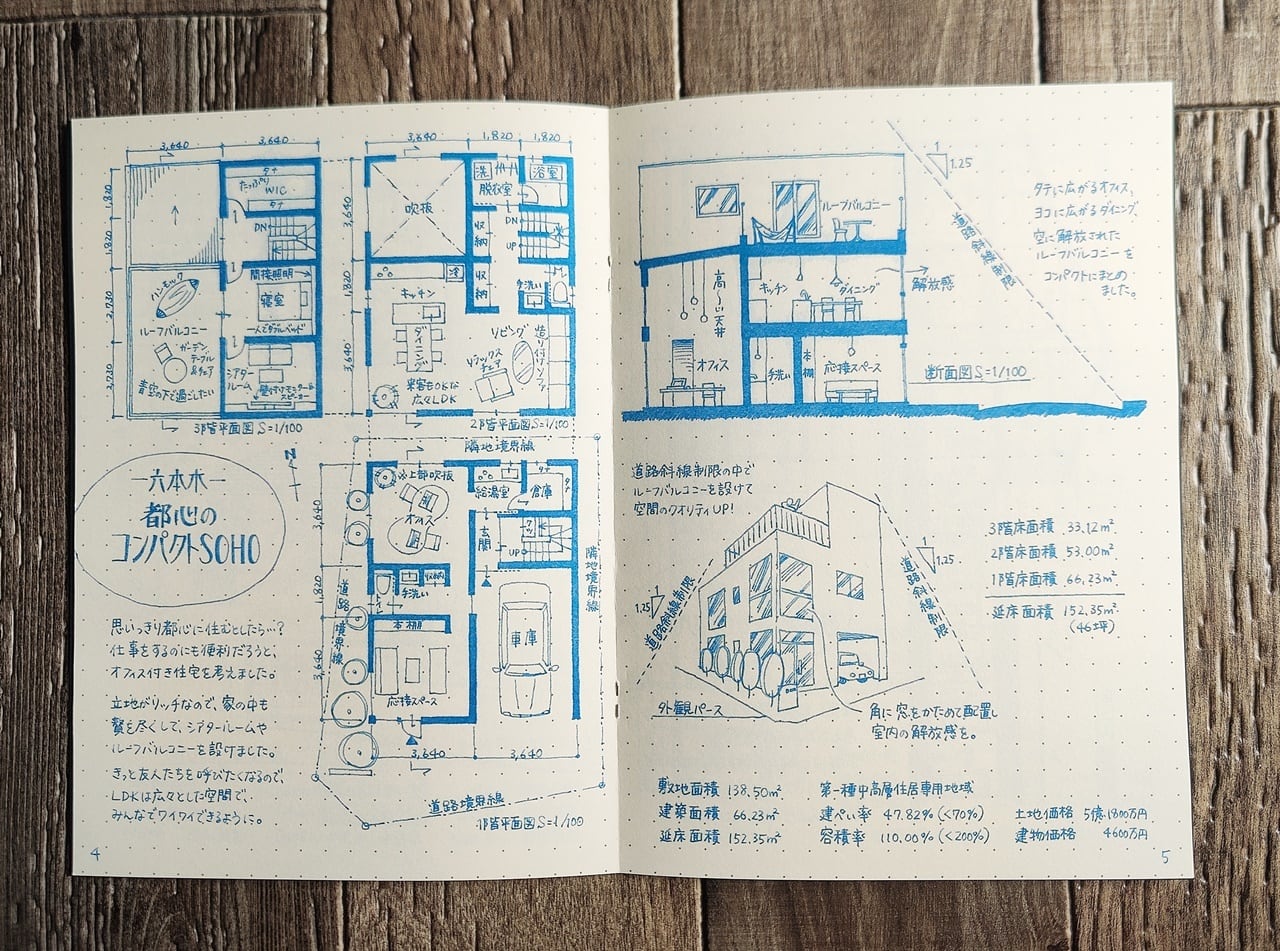 3,640
3,640
タナ
たっぷり
WIC
タナ
DN
1,820
1,820
2,730
2,730
間接照明
寝室
一人でダブルベッド
ハンモック
ルーフバルコニー
ガーデン
テーブル
&チェア
青空の下で過ごしたい
シアター
ルーム
壁付けモニター&
スピーカー
3階平面図 S=1/100
3,640
1,820
1,820
3,640
1,820
3,640
吹抜
洗
脱衣室
浴室
収納
DN
UP
収納
手洗い
冷
キッチン
ダイニング
リビング
造り付けソファ
リラックス
チェア
来客もOKな
広々LDK
2階平面図 S=1/100
N
隣地境界線
隣地境界線
道路境界線
道路境界線
3,640
1,820
3,640
※上部吹抜
オフィス
給湯室
タナ
倉庫
タナ
玄関
UP
手洗い
収納
本棚
応接スペース
車庫
3,640
3,640
1階平面図 S=1/100
一六本木一
都心の
コンパクトSOHO
思いっきり都心に住むとしたら…?
仕事をするのにも便利だろうと、
オフィス付き住宅を考えました。
立地がリッチなので、家の中も
贅を尽くして、シアタールームや
ルーフバルコニーを設けました。
きっと友人たちを呼びたくなるので、
LDKは広々とした空間で、
みんなでワイワイできるように。
4
1
1.25
道路斜線制限
ルーフバルコニー
高〜い天井
キッチン
ダイニング
解放感
オフィス
手洗い
本棚
応接スペース
断面図 S=1/100
タテに広がるオフィス、
ヨコに広がるダイニング、
空に解放された
ルーフバルコニーを
コンパクトにまとめ
ました。
道路斜線制限の中で
ルーフバルコニーを設けて
空間のクオリティUP!
1
1.25
道路斜線制限
1
1.25
道路斜線制限
外観パース
角に窓をかためて配置し
室内の解放感を。
3階床面積 33.12㎡
2階床面積 53.00㎡
1階床面積 66.23㎡
延床面積 152.35㎡
(46坪)
敷地面積 138.50㎡
建築面積 66.23㎡
延床面積 152.35㎡
第一種中高層住居専用地域
建ぺい率 47.82% (<70%)
容積率 110.00% (<200%)
土地価格 5億1800万円
建物価格 4600万円
5